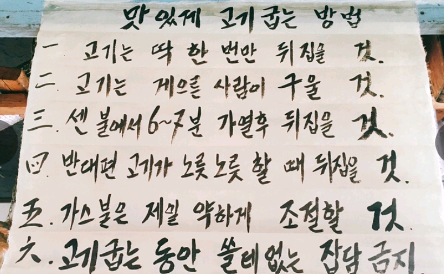 맛있게 고기 굽는 방법
一. 고기는 딱 한 번만 뒤집을 것.
二. 고기는 게으른 사람이 구울 것.
三. 센 불에서 6~7분 가열후 뒤집을 것.
四. 반대편 고기가 노릇노릇 할 때 뒤집을 것.
五. 가스불은 제일 약하게 조절할 것.
六. 고기굽는 동안 쓸데없는 잡담 금지